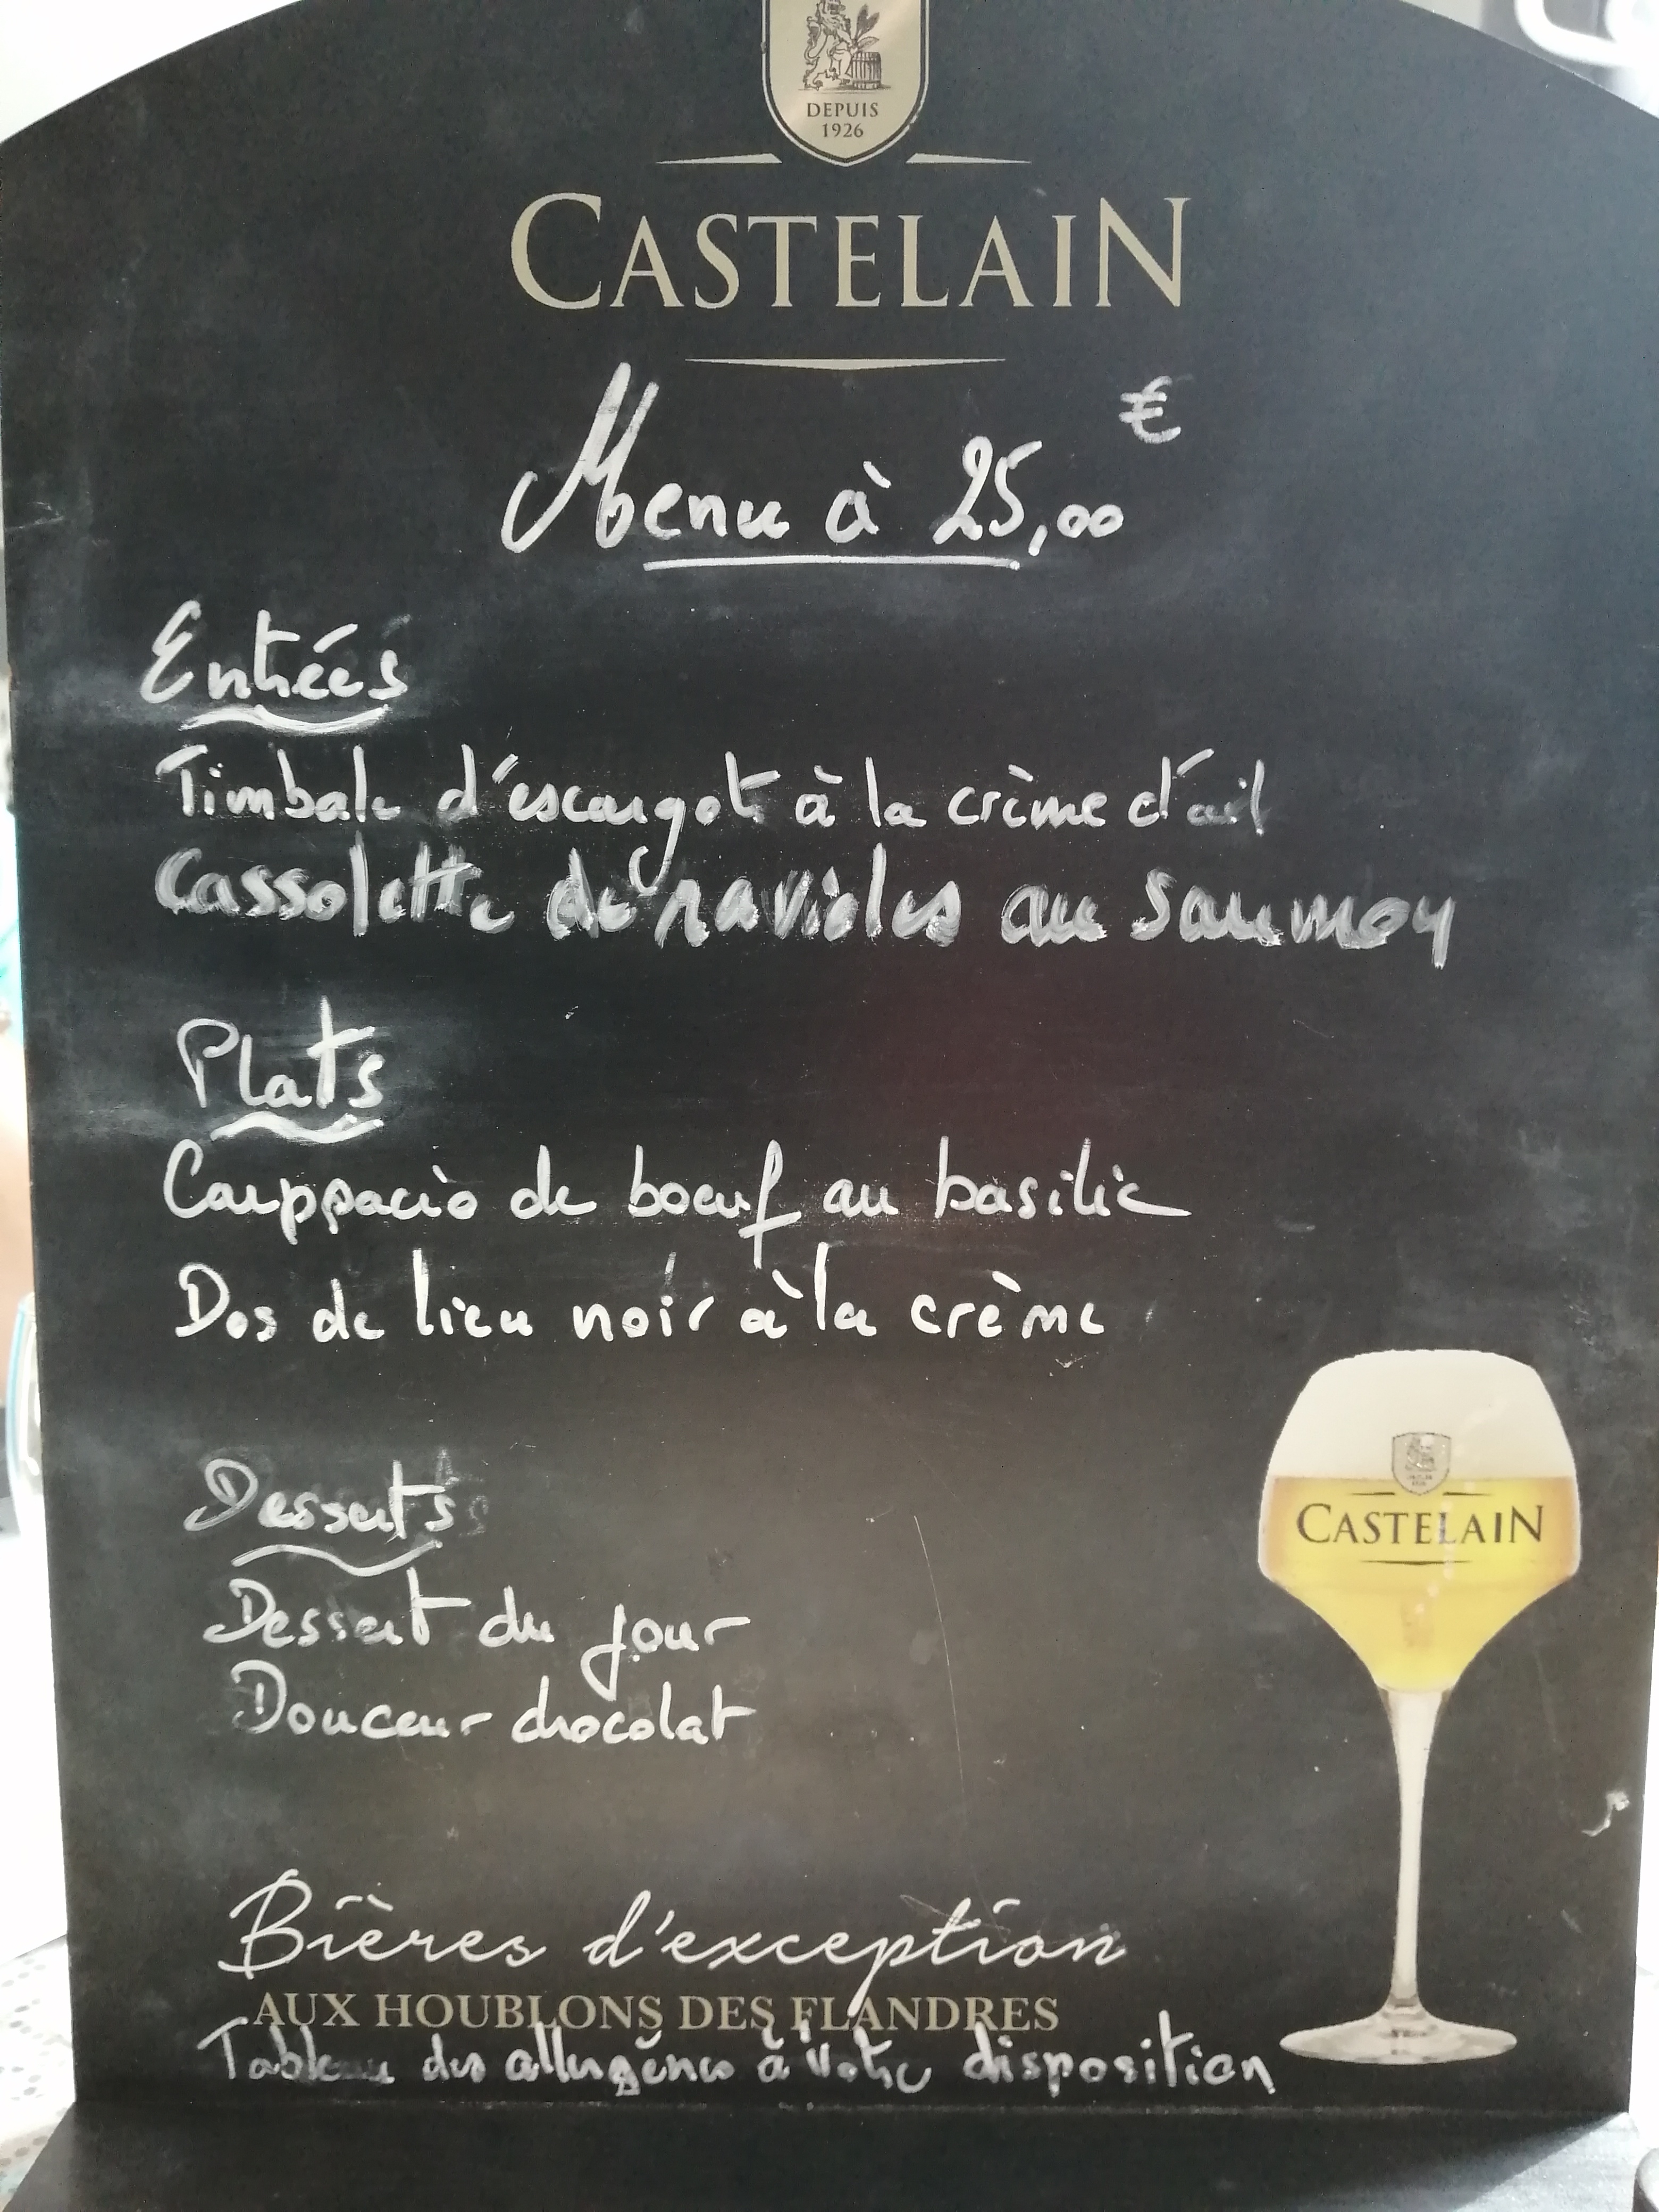 DEPUIS
1926
CASTELAIN
Menu à 25,00 €
Entrées
Timbale d'escargot à la crème d'ail
Cassolette de ravioles au saumon
Plats
Carppacio de boeuf au basilic
Dos de lieu noir à la crème
Desserts
Dessert du jour
Douceur chocolat
CASTELAIN
Bières d'exception
AUX HOUBLONS DES FLANDRES
Tableau des allergènes à votre disposition